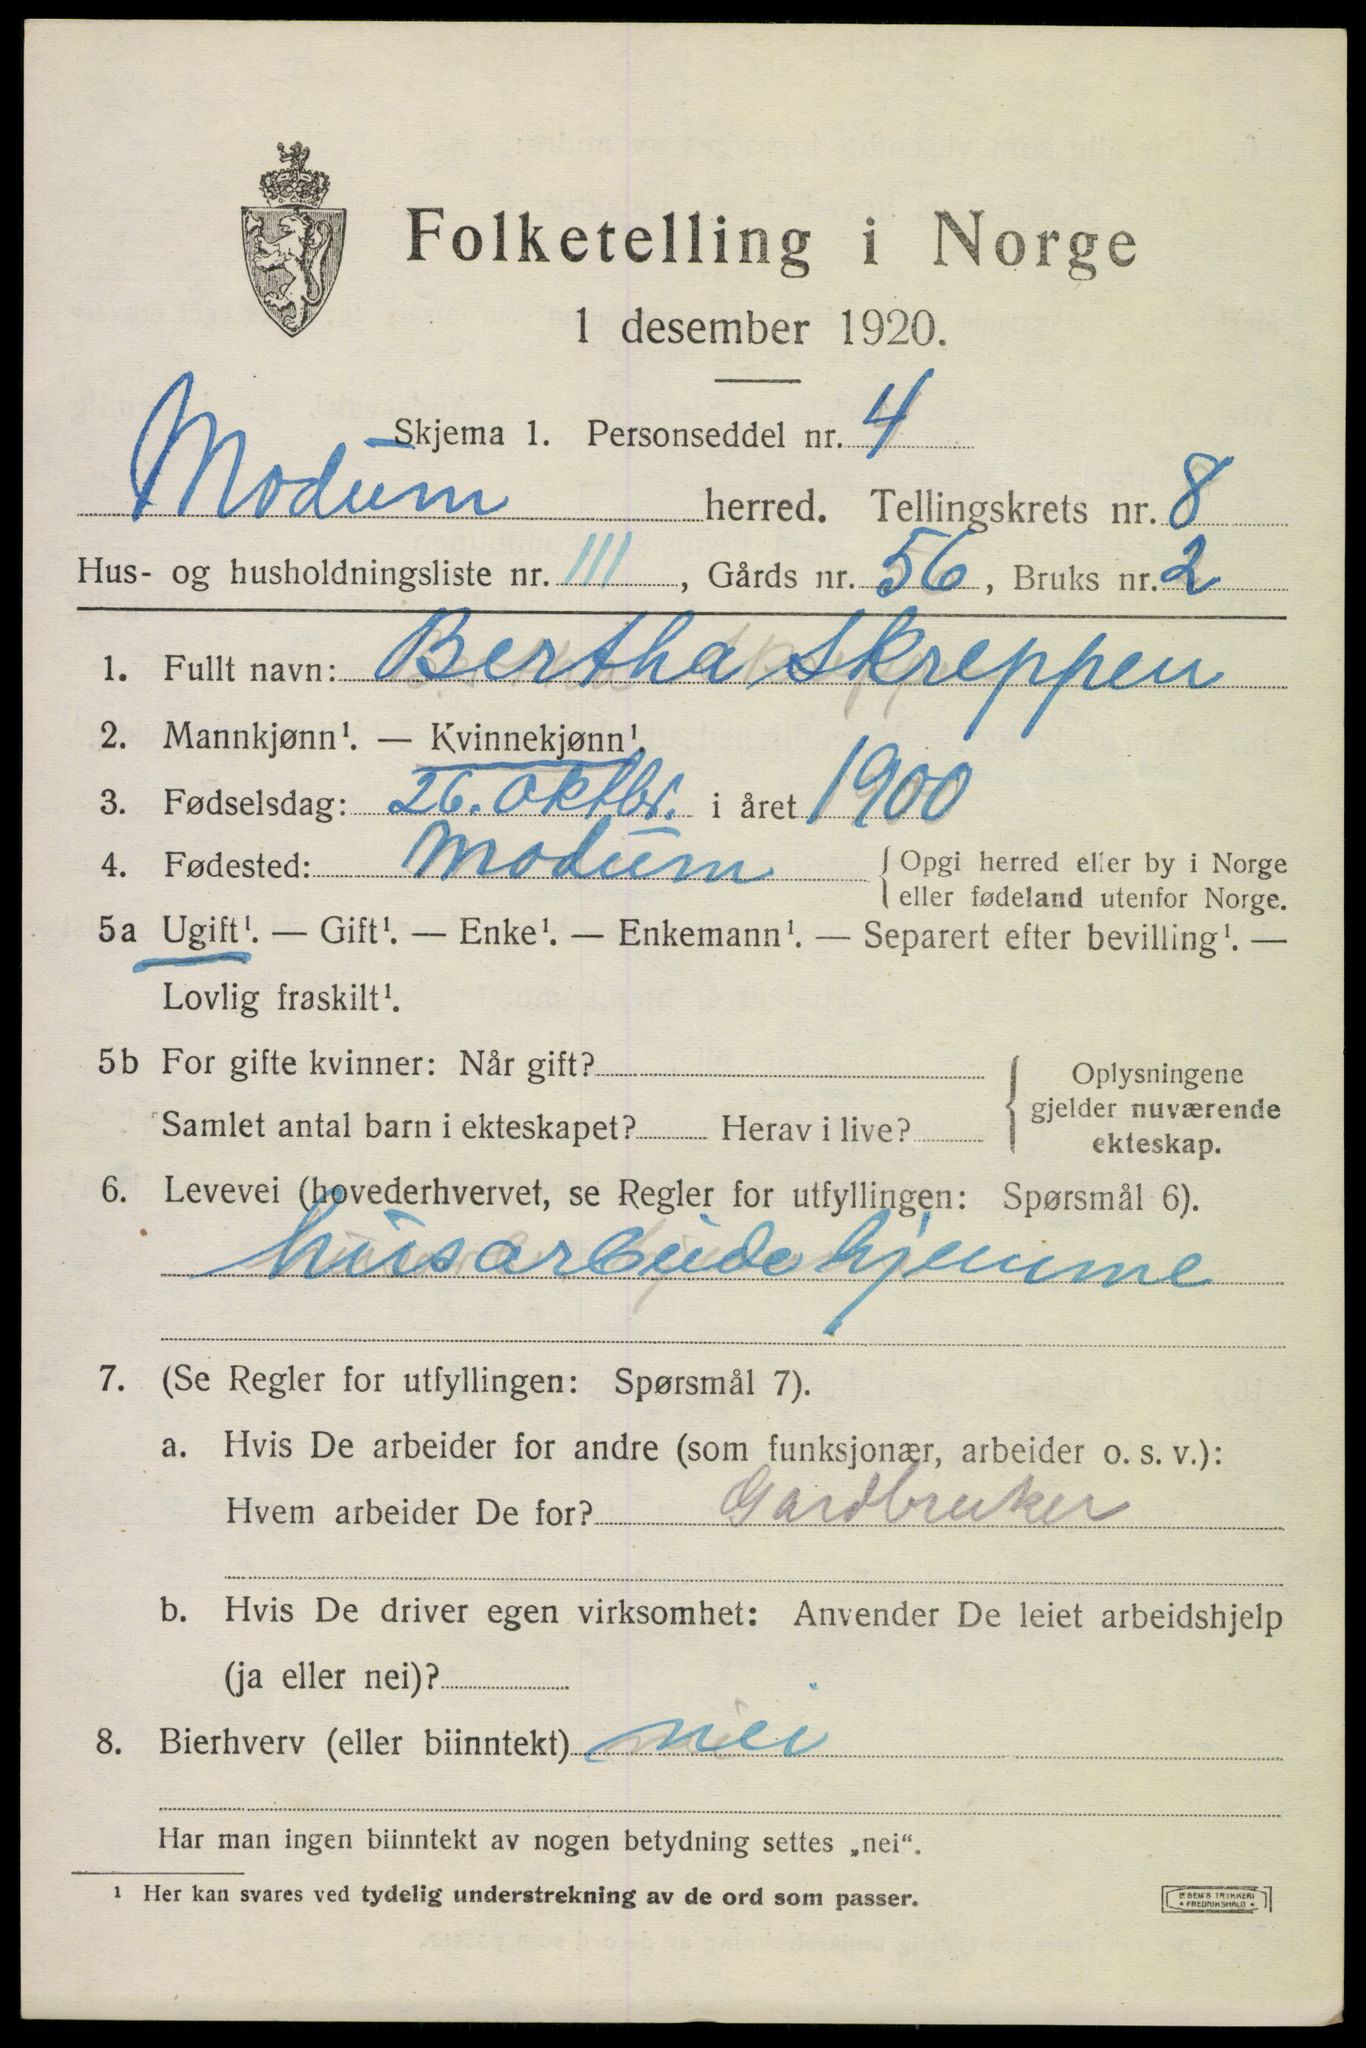 Folketelling i Norge
1 desember 1920.
Skjema 1. Personseddel nr. 4
Modum herred. Tellingskrets nr. 8
Hus- og husholdningsliste nr. 111, Gårds nr. 56, Bruks nr. 2
1. Fullt navn: Bertha Skreppen
2. Mannkjønn¹. — Kvinnekjønn¹.
3. Fødselsdag: 26. oktbr. i året 1900
4. Fødested: Modum { Opgi herred eller by i Norge
eller fødeland utenfor Norge.
5a Ugift¹. — Gift¹. — Enke¹. — Enkemann¹. — Separert efter bevilling¹. —
Lovlig fraskilt¹.
5b For gifte kvinner: Når gift?
Samlet antal barn i ekteskapet? Herav i live?
{ Oplysningene
gjelder nuværende
ekteskap.
6. Levevei (hovederhvervet, se Regler for utfyllingen: Spørsmål 6).
husarbeide hjemme
7. (Se Regler for utfyllingen: Spørsmål 7).
a. Hvis De arbeider for andre (som funksjonær, arbeider o. s. v.):
Hvem arbeider De for? Gardbruker
b. Hvis De driver egen virksomhet: Anvender De leiet arbeidshjelp
(ja eller nei)?
8. Bierhverv (eller biinntekt) nei
Har man ingen biinntekt av nogen betydning settes „nei“.
¹ Her kan svares ved tydelig understrekning av de ord som passer.
SEM'S TRYKKERI
FREDRIKSHALD